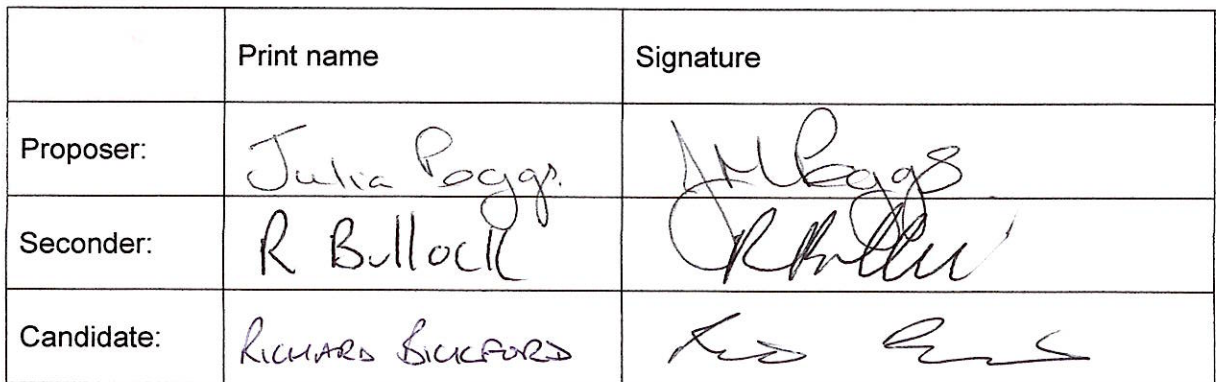 Print name Signature
Proposer: Julia Poggs. JM Poggs
Seconder: R Bullock
Candidate: RICHARD BICKFORD